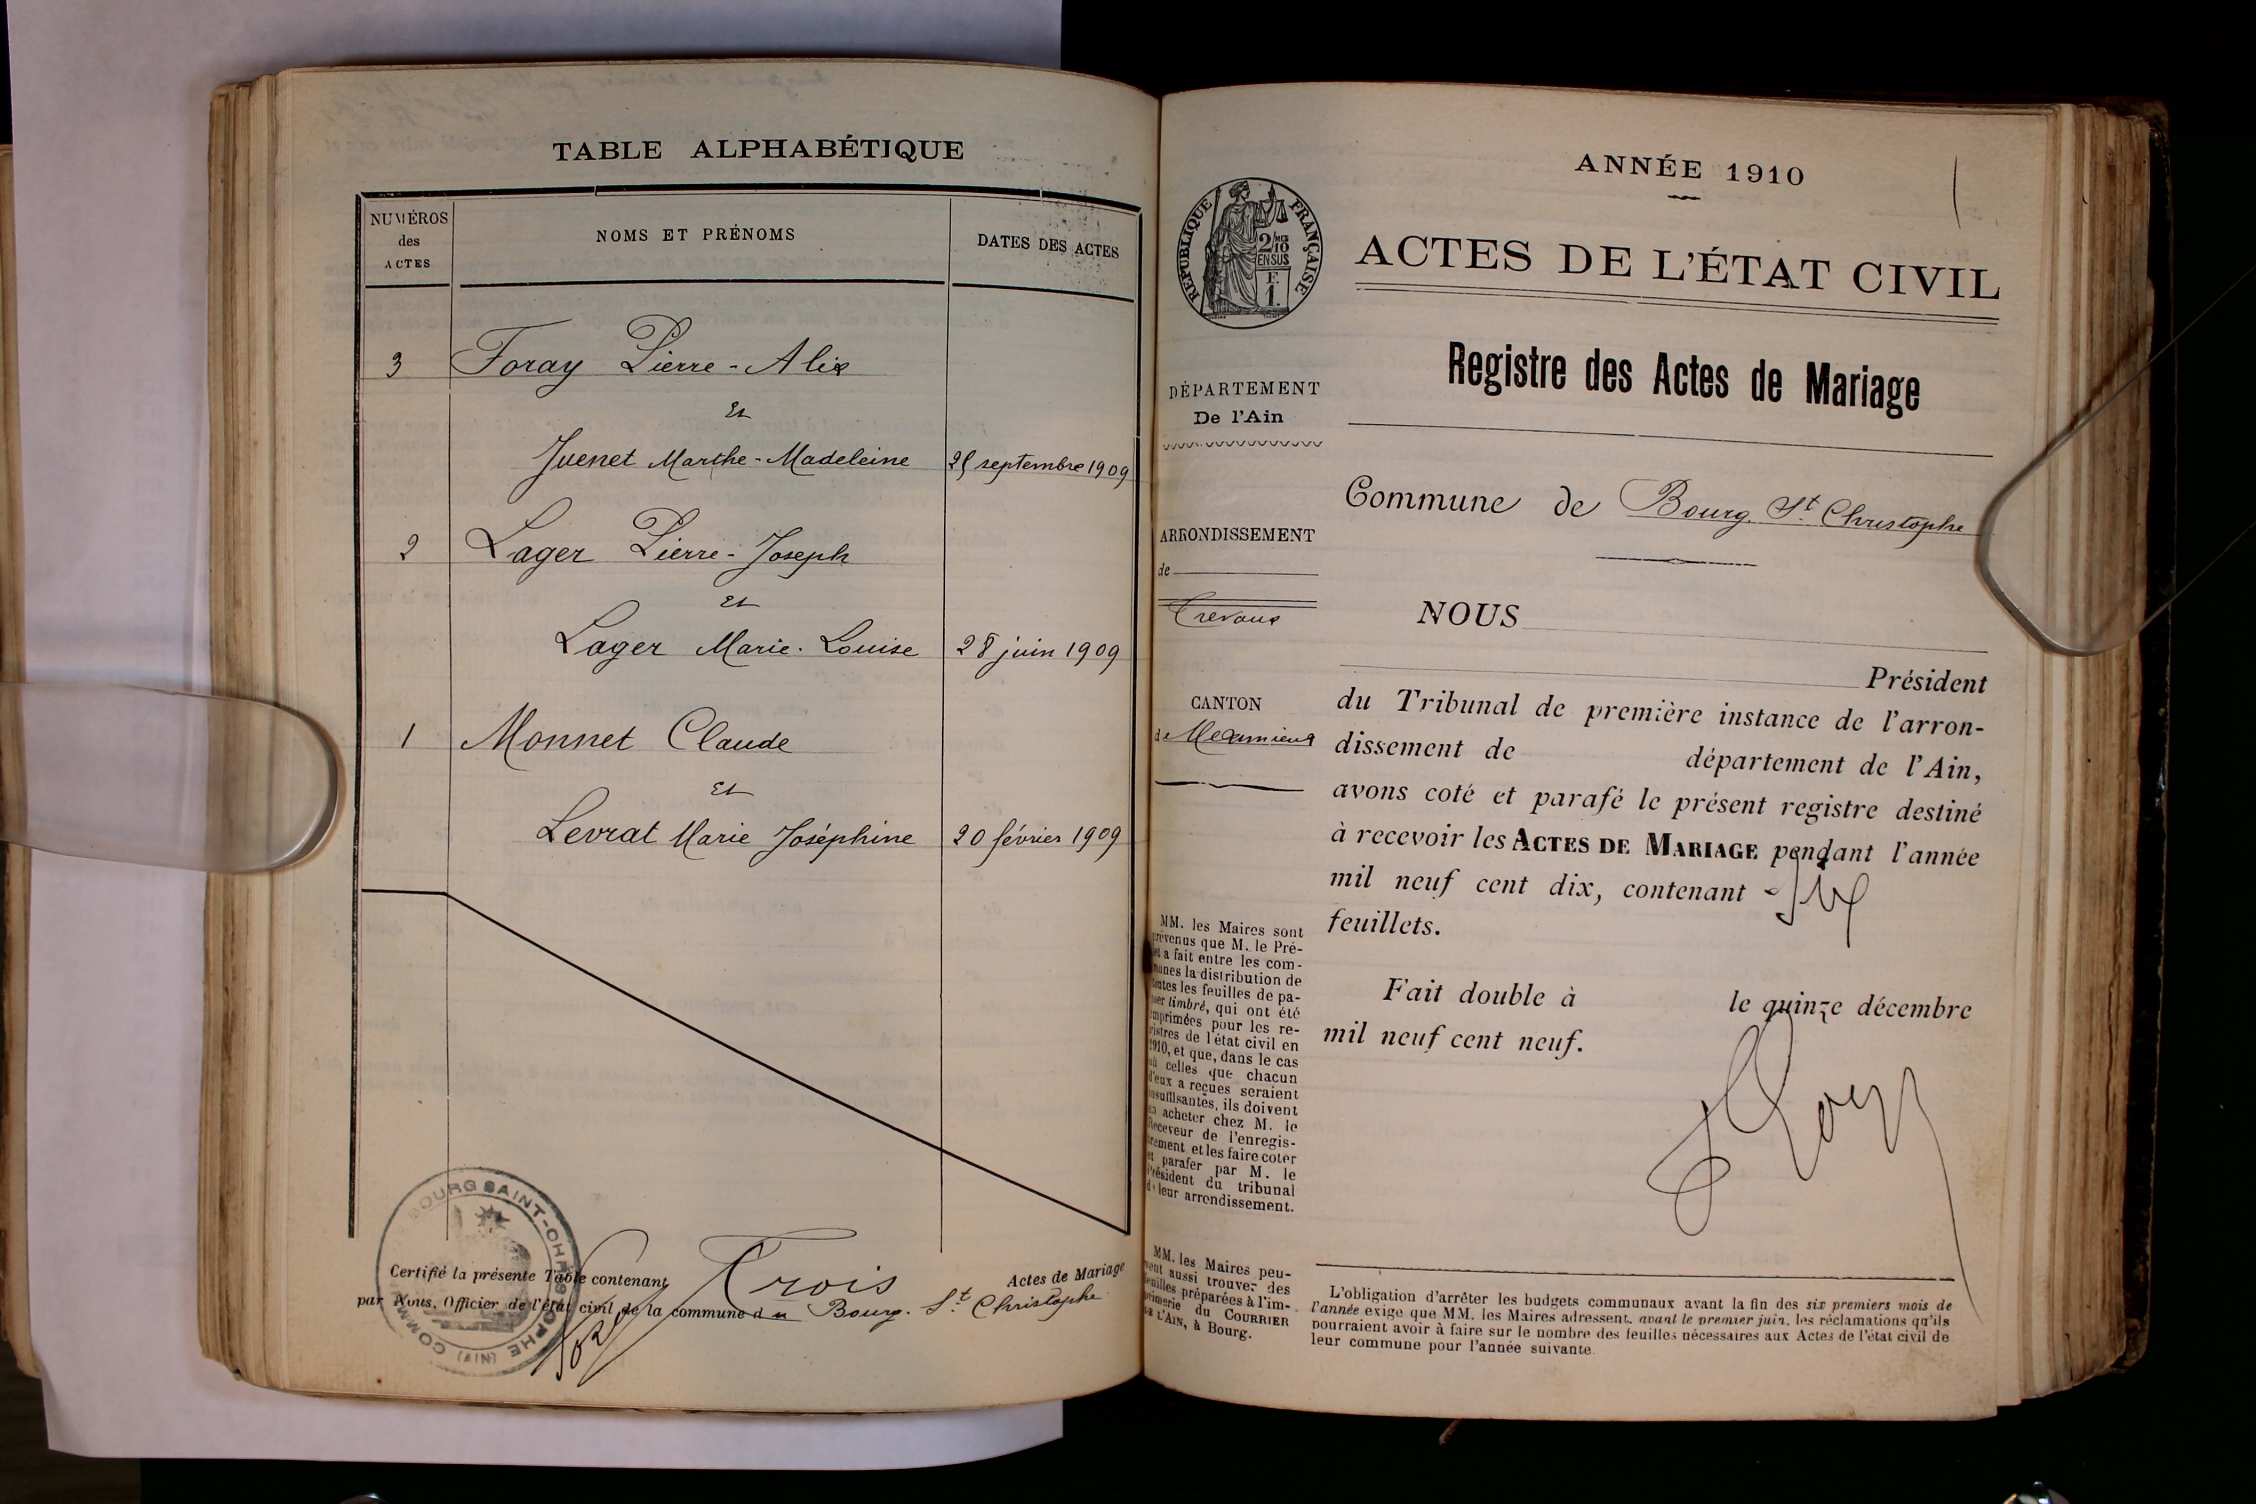 TABLE ALPHABÉTIQUE
NUMÉROS
des
ACTES
NOMS ET PRÉNOMS
DATES DES ACTES
3 Foray Pierre-Alix
Et
Juenet Marthe-Madeleine septembre 1909
2 Lager Pierre-Joseph
Et
Lager Marie-Louise 28 juin 1909
1 Monnet Claude
Et
Levrat Marie Joséphine 20 février 1909
Certifié la présente Table contenant Trois Actes de Mariage
par Nous, Officier de l'état civil de la commune du Bourg-St Christophe
BOURG SAINT-CHRISTOPHE (AIN)
ANNÉE 1910
RÉPUBLIQUE FRANÇAISE
2/10 EN SUS
F. 1.
ACTES DE L'ÉTAT CIVIL
Registre des Actes de Mariage
DÉPARTEMENT
De l'Ain
Commune de Bourg St Christophe
ARRONDISSEMENT
de
Trévoux
CANTON
de Meximieux
NOUS
Président
du Tribunal de première instance de l'arron-
dissement de département de l'Ain,
avons coté et parafé le présent registre destiné
à recevoir les ACTES DE MARIAGE pendant l'année
mil neuf cent dix, contenant six
feuillets.
Fait double à le quinze décembre
mil neuf cent neuf.
MM. les Maires sont
prévenus que M. le Pré-
fet a fait entre les com-
munes la distribution de
toutes les feuilles de pa-
pier timbré, qui ont été
imprimées pour les re-
gistres de l'état civil en
1910, et que, dans le cas
où celles que chacun
d'eux a reçues seraient
insuffisantes, ils doivent
en acheter chez M. le
Receveur de l'enregis-
trement et les faire coter
et parafer par M. le
Président du tribunal
de leur arrondissement.
MM. les Maires peu-
vent aussi trouver des
feuilles préparées à l'im-
primerie du COURRIER
DE L'AIN, à Bourg.
L'obligation d'arrêter les budgets communaux avant la fin des six premiers mois de
l'année exige que MM. les Maires adressent, avant le premier juin, les réclamations qu'ils
pourraient avoir à faire sur le nombre des feuilles nécessaires aux Actes de l'état civil de
leur commune pour l'année suivante.